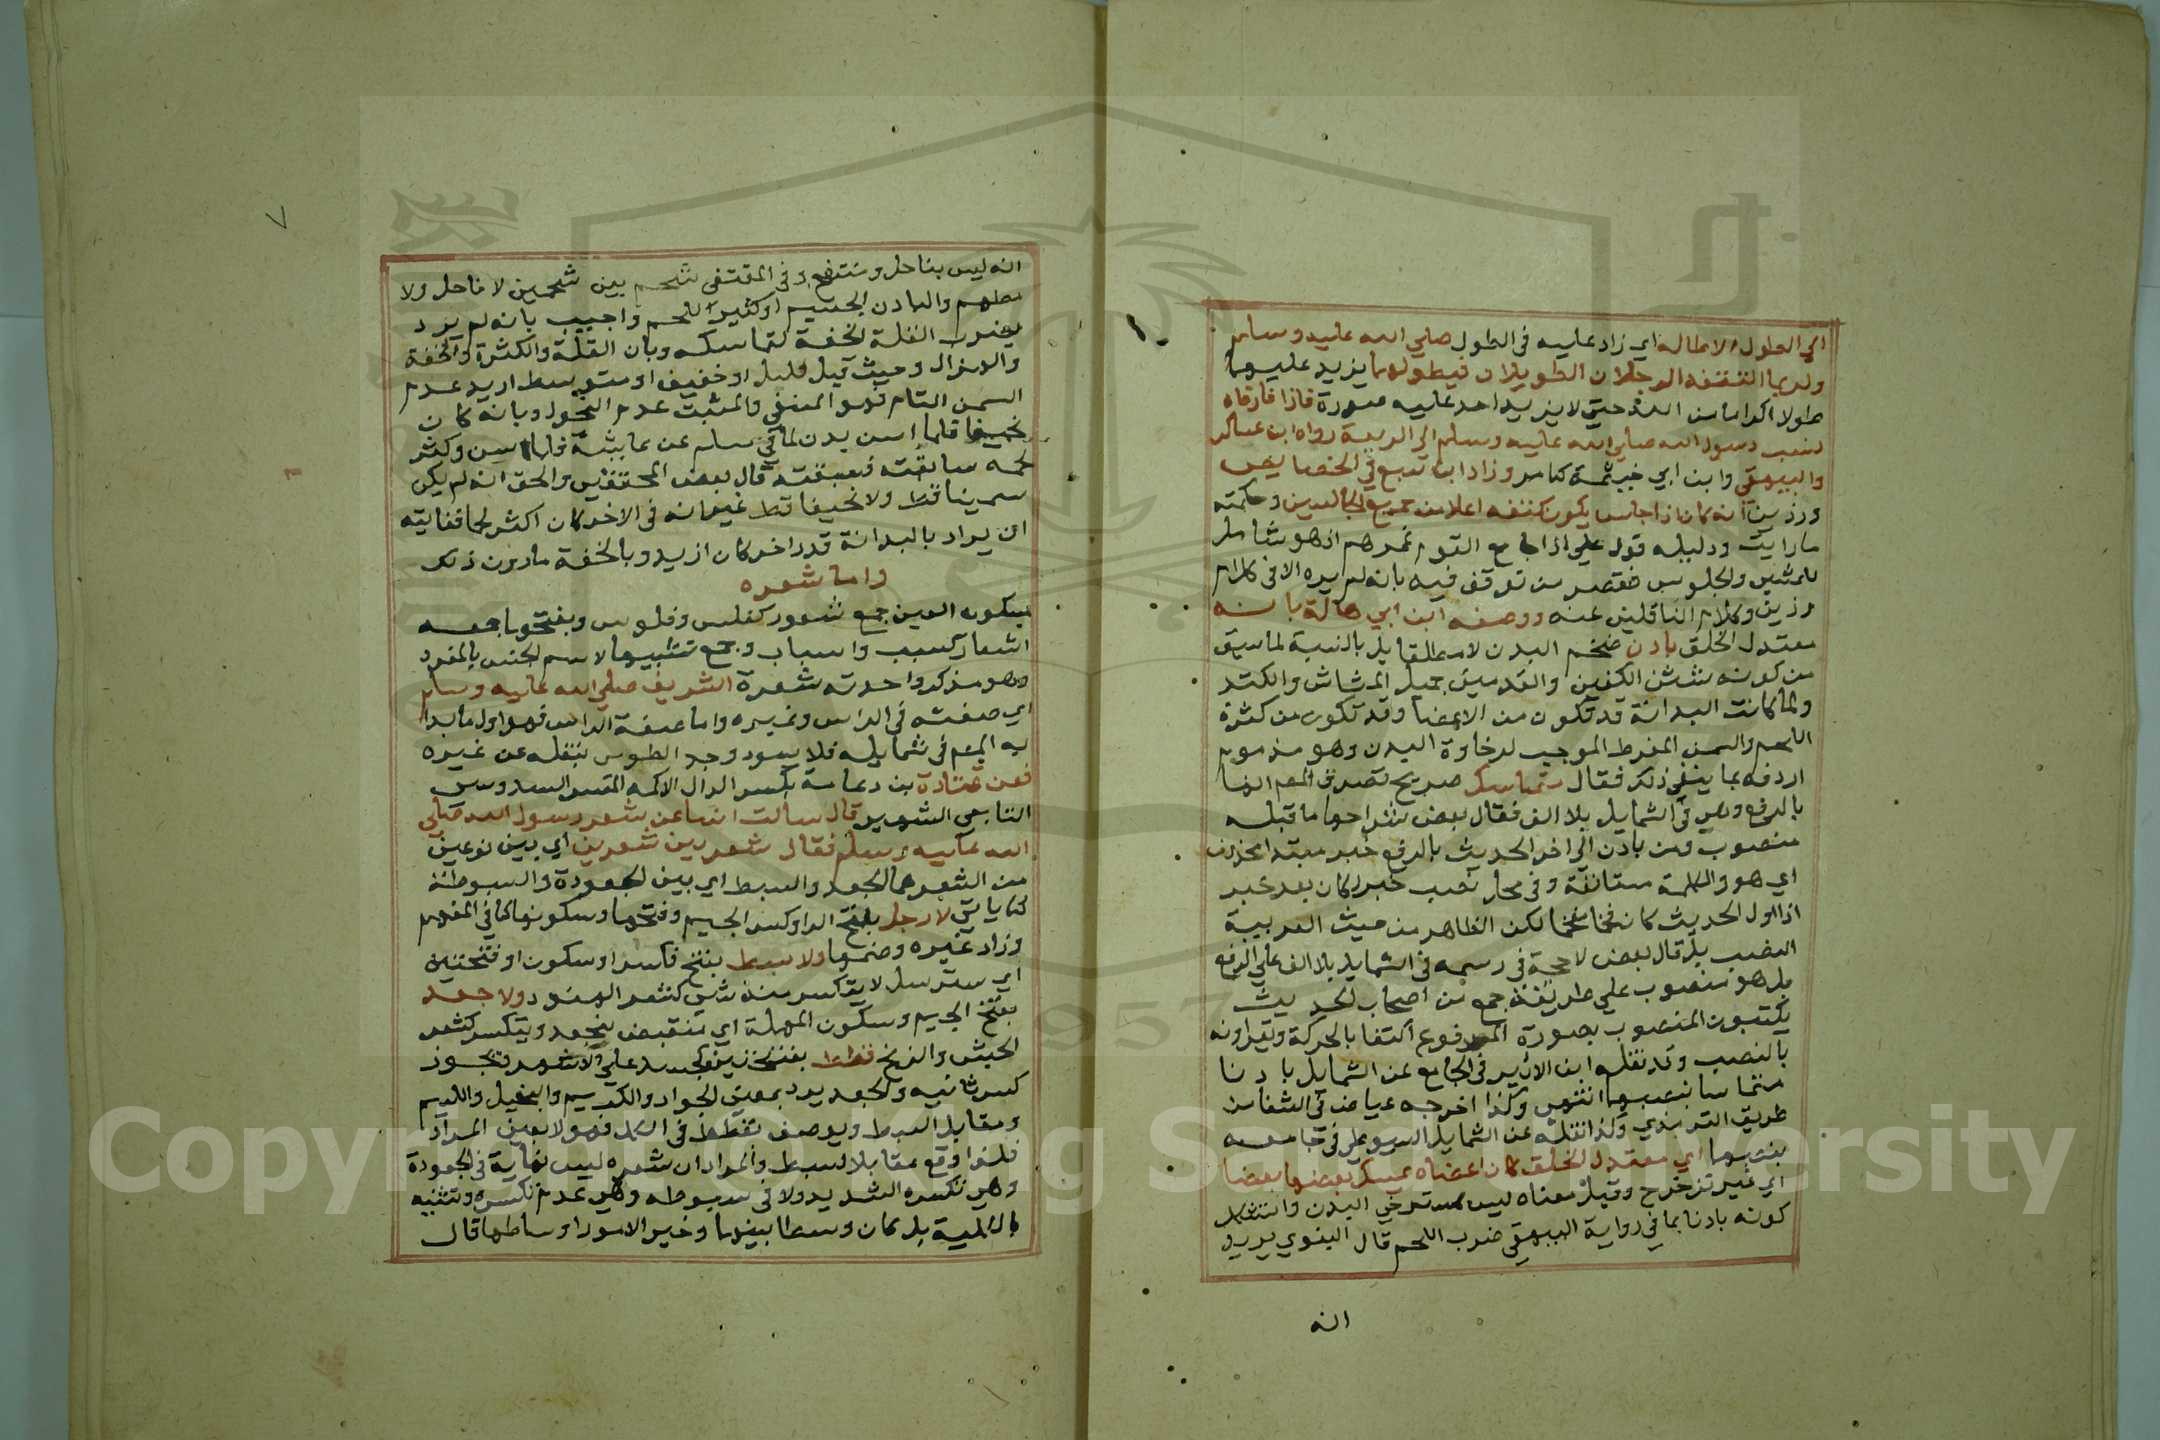 الي الطول الاطاله اي زاد عليه في الطول صلي الله عليه وسلم
ولربما اكتنفه الرجلان الطويلان فيطولهما يزيد عليهما
طولا اكراما من الله حتي لا يزيد احد عليه صورة فاذا فارقاه
نسب رسول الله صلي الله عليه وسلم الي الربعة رواه ابن عساكر
والبيهقي وابن ابي خيثمة كما مر وزاد ابن سبع في الخصايص
ورزين انه كان اذا جلس يكون كتفه اعلا من جميع الجالسين وحكمته
ما رايت ودليله قول علي اذا جا مع القوم غمرهم اذ هو شامل
للمشي والجلوس فقصر من توقف فيه بانه لم يره الا في كلام
رزين وكلام الناقلين عنه ووصفه ابن ابي هالة بانه
معتدل الخلق بادن ضخم البدن لا مطلقا بل بالنسبة لما سبق
من كونه شثن الكفين والقدمين جميل المشاش والكتد
ولما كانت البدانة قد تكون من الاعضا وقد تكون من كثرة
اللحم والسمن المفرط الموجب لرخاوة البدن وهو مذموم
اردفه بما ينفي ذلك فقال متماسك صريح
بالرفع وهي في الشمايل بلا الف فقال بعض شراحها ما قبله
منصوب ومن بادن الي اخر الحديث بالرفع خبر مبتدا محذوف
اي هو والكلمة مستانفة وفي محل نصب خبر لكان بعد خبر
اذ اول الحديث كان فخما مفخما لكن الظاهر من حيث العربية
النصب بل قال بعض لا حجة في رسمه في الشمايل بلا الف علي الرفع
بل هو منصوب علي طريقة جمع من اصحاب الحديث
يكتبون المنصوب بصورة المرفوع اكتفا بالحركة ويقراونه
بالنصب وقد نقله ابن الاثير في الجامع عن الشمايل بادنا
متماسكا بنصبهما انتهي وكذا اخرجه عياض في الشفا من
طريق الترمذي وكذا نقله عن الشمايل السيوطي في جامعه
بنصبهما اي معتدل الخلق كان اعضاه يمسك بعضها بعضا
اي غير ترجرج وقيل معناه ليس بمسترخي البدن واستشكل
كونه بادنا بما في رواية البيهقي ضرب اللحم قال البغوي يريد
انه
٧
انه ليس بناحل ومنتفخ وفي المقتفي شحم بين شحمين لا ناحل ولا
مطهم والبادن الجسيم او كثير اللحم واجيب بانه لم يرد
بضرب القلة لخفة لتماسكه وبان القلة والكثرة والخفة
والهزال وحيث قيل قليل او خفيف او متوسط اريد عدم
السمن التام فهو المنفي والمثبت عدم النحول وبانه كان
نحيفا فلما اسن بدن لما في مسلم عن عايشة فلما اسن وكثر
لحمه سابقته فسبقته قال بعض المحققين والحق انه لم يكن
سمينا قط ولا نحيفا قط غير انه في الاخر كان اكثر لحما فغايته
ان يراد بالبدانة قدر اخر كان ازيد وبالخفة ما دون ذلك
واما شعره
بسكون العين جمع شعور كفلس وفلوس وبفتحها جمعه
اشعار كسبب واسباب وجمع تغليبها لاسم الجنس بالمفرد
وهو مذكر واحدته شعرة الشريف صلي الله عليه وسلم
اي صفته في الراس وغيره واما صفة الراس فهو اول ما بدا
به المصم في شمايله فلا يسود وجه الطوس بنقله عن غيره
فعن قتادة بن دعامة بكسر الدال الاكمه المفسر السدوسي
التابعي الشهير قال سالت انسا عن شعر رسول الله صلي
الله عليه وسلم فقال شعر بين شعرين اي بين نوعين
من الشعر هما الجعد والسبط اي بين الجعودة والسبوطة
كما ياتي لا رجل بفتح الرا وكسر الجيم وفتحها وسكونها كما في المفهم
وزاد غيره وضمها ولا سبط بفتح فكسر او سكون او فتحتين
اي مسترسل لا يتكسر منه شي كشعر الهنود ولا جعد
بفتح الجيم وسكون المهملة اي منقبض يتجعد ويتكسر كشعر
الحبش والزنج قطط بفتحتين كجسد علي الاشهر ويجوز
كسر ثانيه والجعد يرد بمعني الجواد والكريم والبخيل واللئيم
ومقابل السبط ويوصف بقطط في الكل فهو لا يعين المراد
فلذا وقع مقابلا لسبط والمراد ان شعره ليس نهاية في الجعودة
وهي تكسره الشديد ولا في سبوطه وهي عدم تكسره وتثنيه
بالكلية بل كان وسطا بينهما وخير الامور اوساطها قال
Copyright © King Saud University
1957